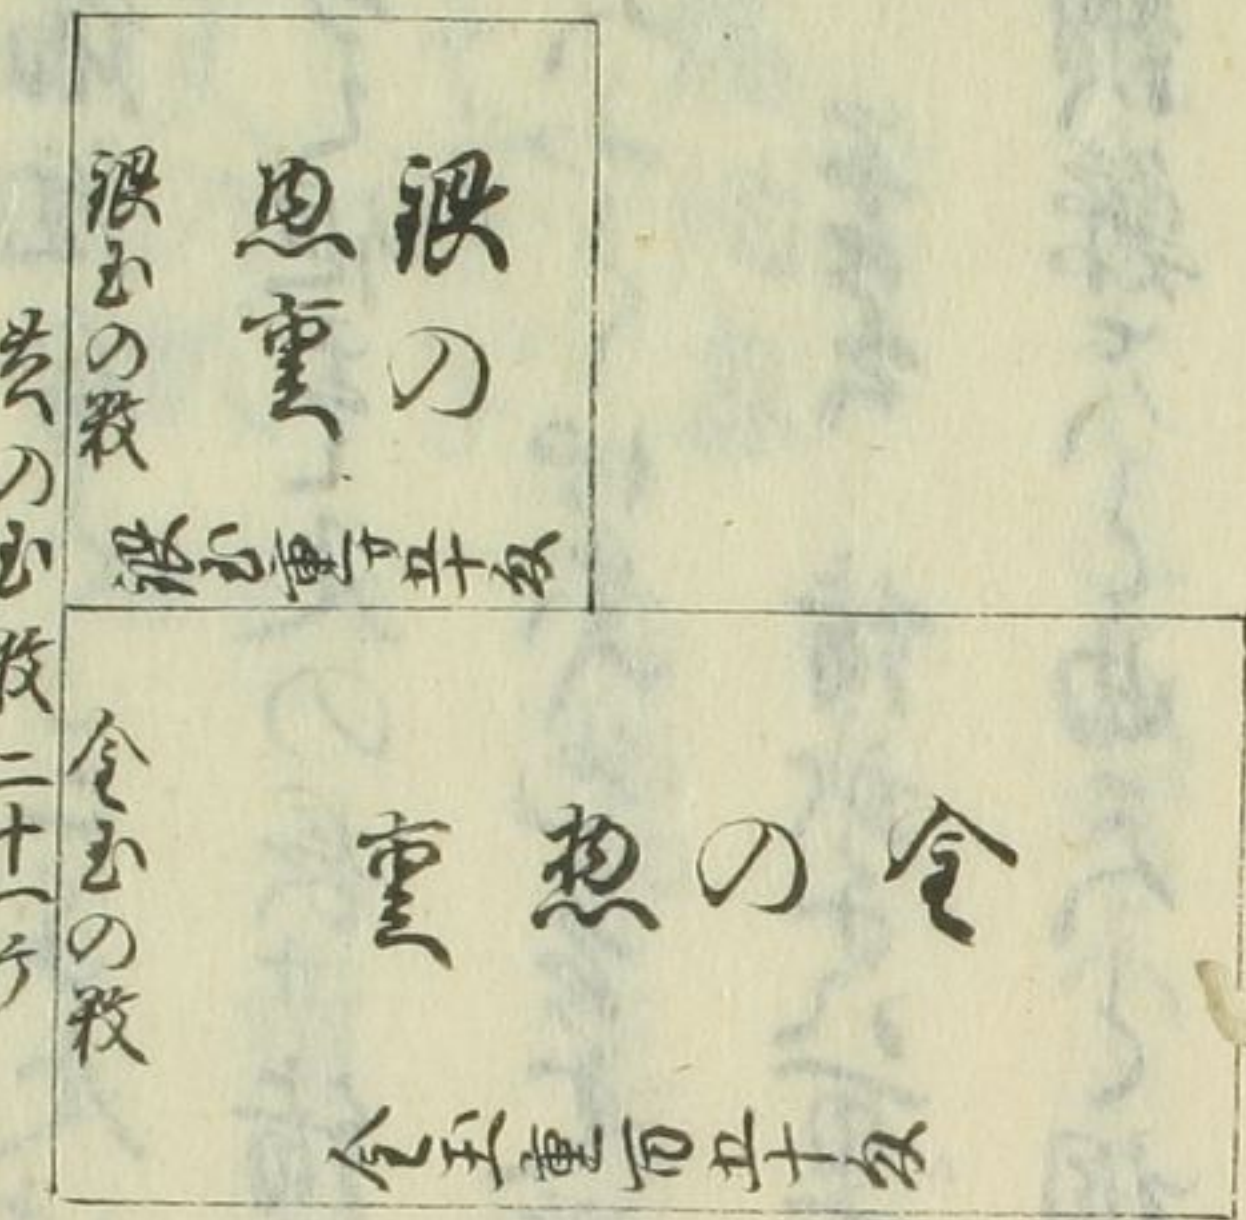 銀の
惣重
銀玉の数
銀玉重百五十匁
金の惣重
金玉の数
金玉重百五十匁
共の玉数二十一ケ